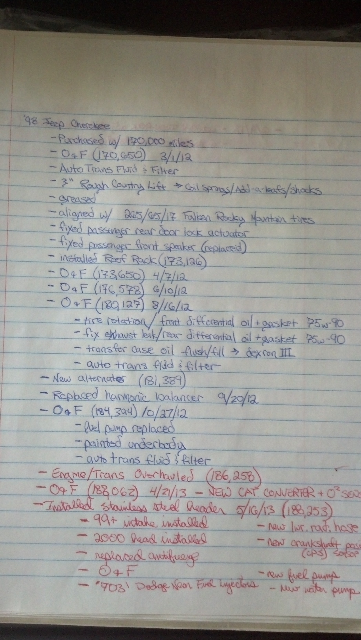 '98 Jeep Cherokee
- Purchased w/ 170,000 miles
- O&F (170,650) 3/1/12
- Auto Trans Fluid & Filter
- 3" Rough Country Lift → Coil springs/Add-a-leafs/shocks
- greased
- aligned w/ 265/65/17 Falken Rocky Mountain tires
- fixed passenger rear door lock actuator
- fixed passenger front speaker (replaced)
- installed Roof Rack (173,126)
- O&F (173,650) 4/7/12
- O&F (176,578) 6/10/12
- O&F (180,127) 8/16/12
- tire rotation/front differential oil + gasket 75w-90
- fix exhaust leak/rear differential oil + gasket 75w-90
- transfer case oil flush/fill → dexron III
- auto trans fluid & filter
- New alternator (181,389)
- Replaced harmonic balancer 9/20/12
- O&F (184,324) 10/27/12
- fuel pump replaced
- painted underbody
- auto trans fluid & filter
- Engine/Trans Overhauled (186,258)
- O&F (188,062) 4/21/13 - NEW CAT CONVERTER + O²
- Installed Stainless Steel Header 5/16/13 (188,253)
- 99+ intake installed - New lwr. rad. hose
- 2000 head installed - New crankshaft
- replaced antifreeze (CPS)
- O&F - New fuel pump
- '703' Dodge Neon Fuel Injectors - New water pump